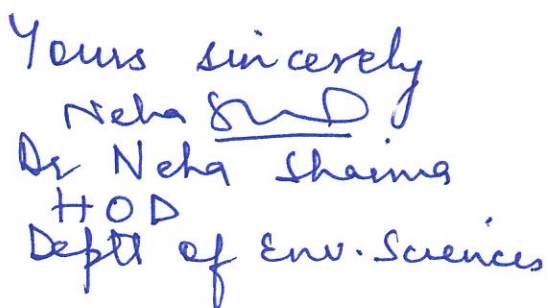 Yours sincerely
Neha
Dr Neha Sharma
HOD
Deptt of Env. Sciences